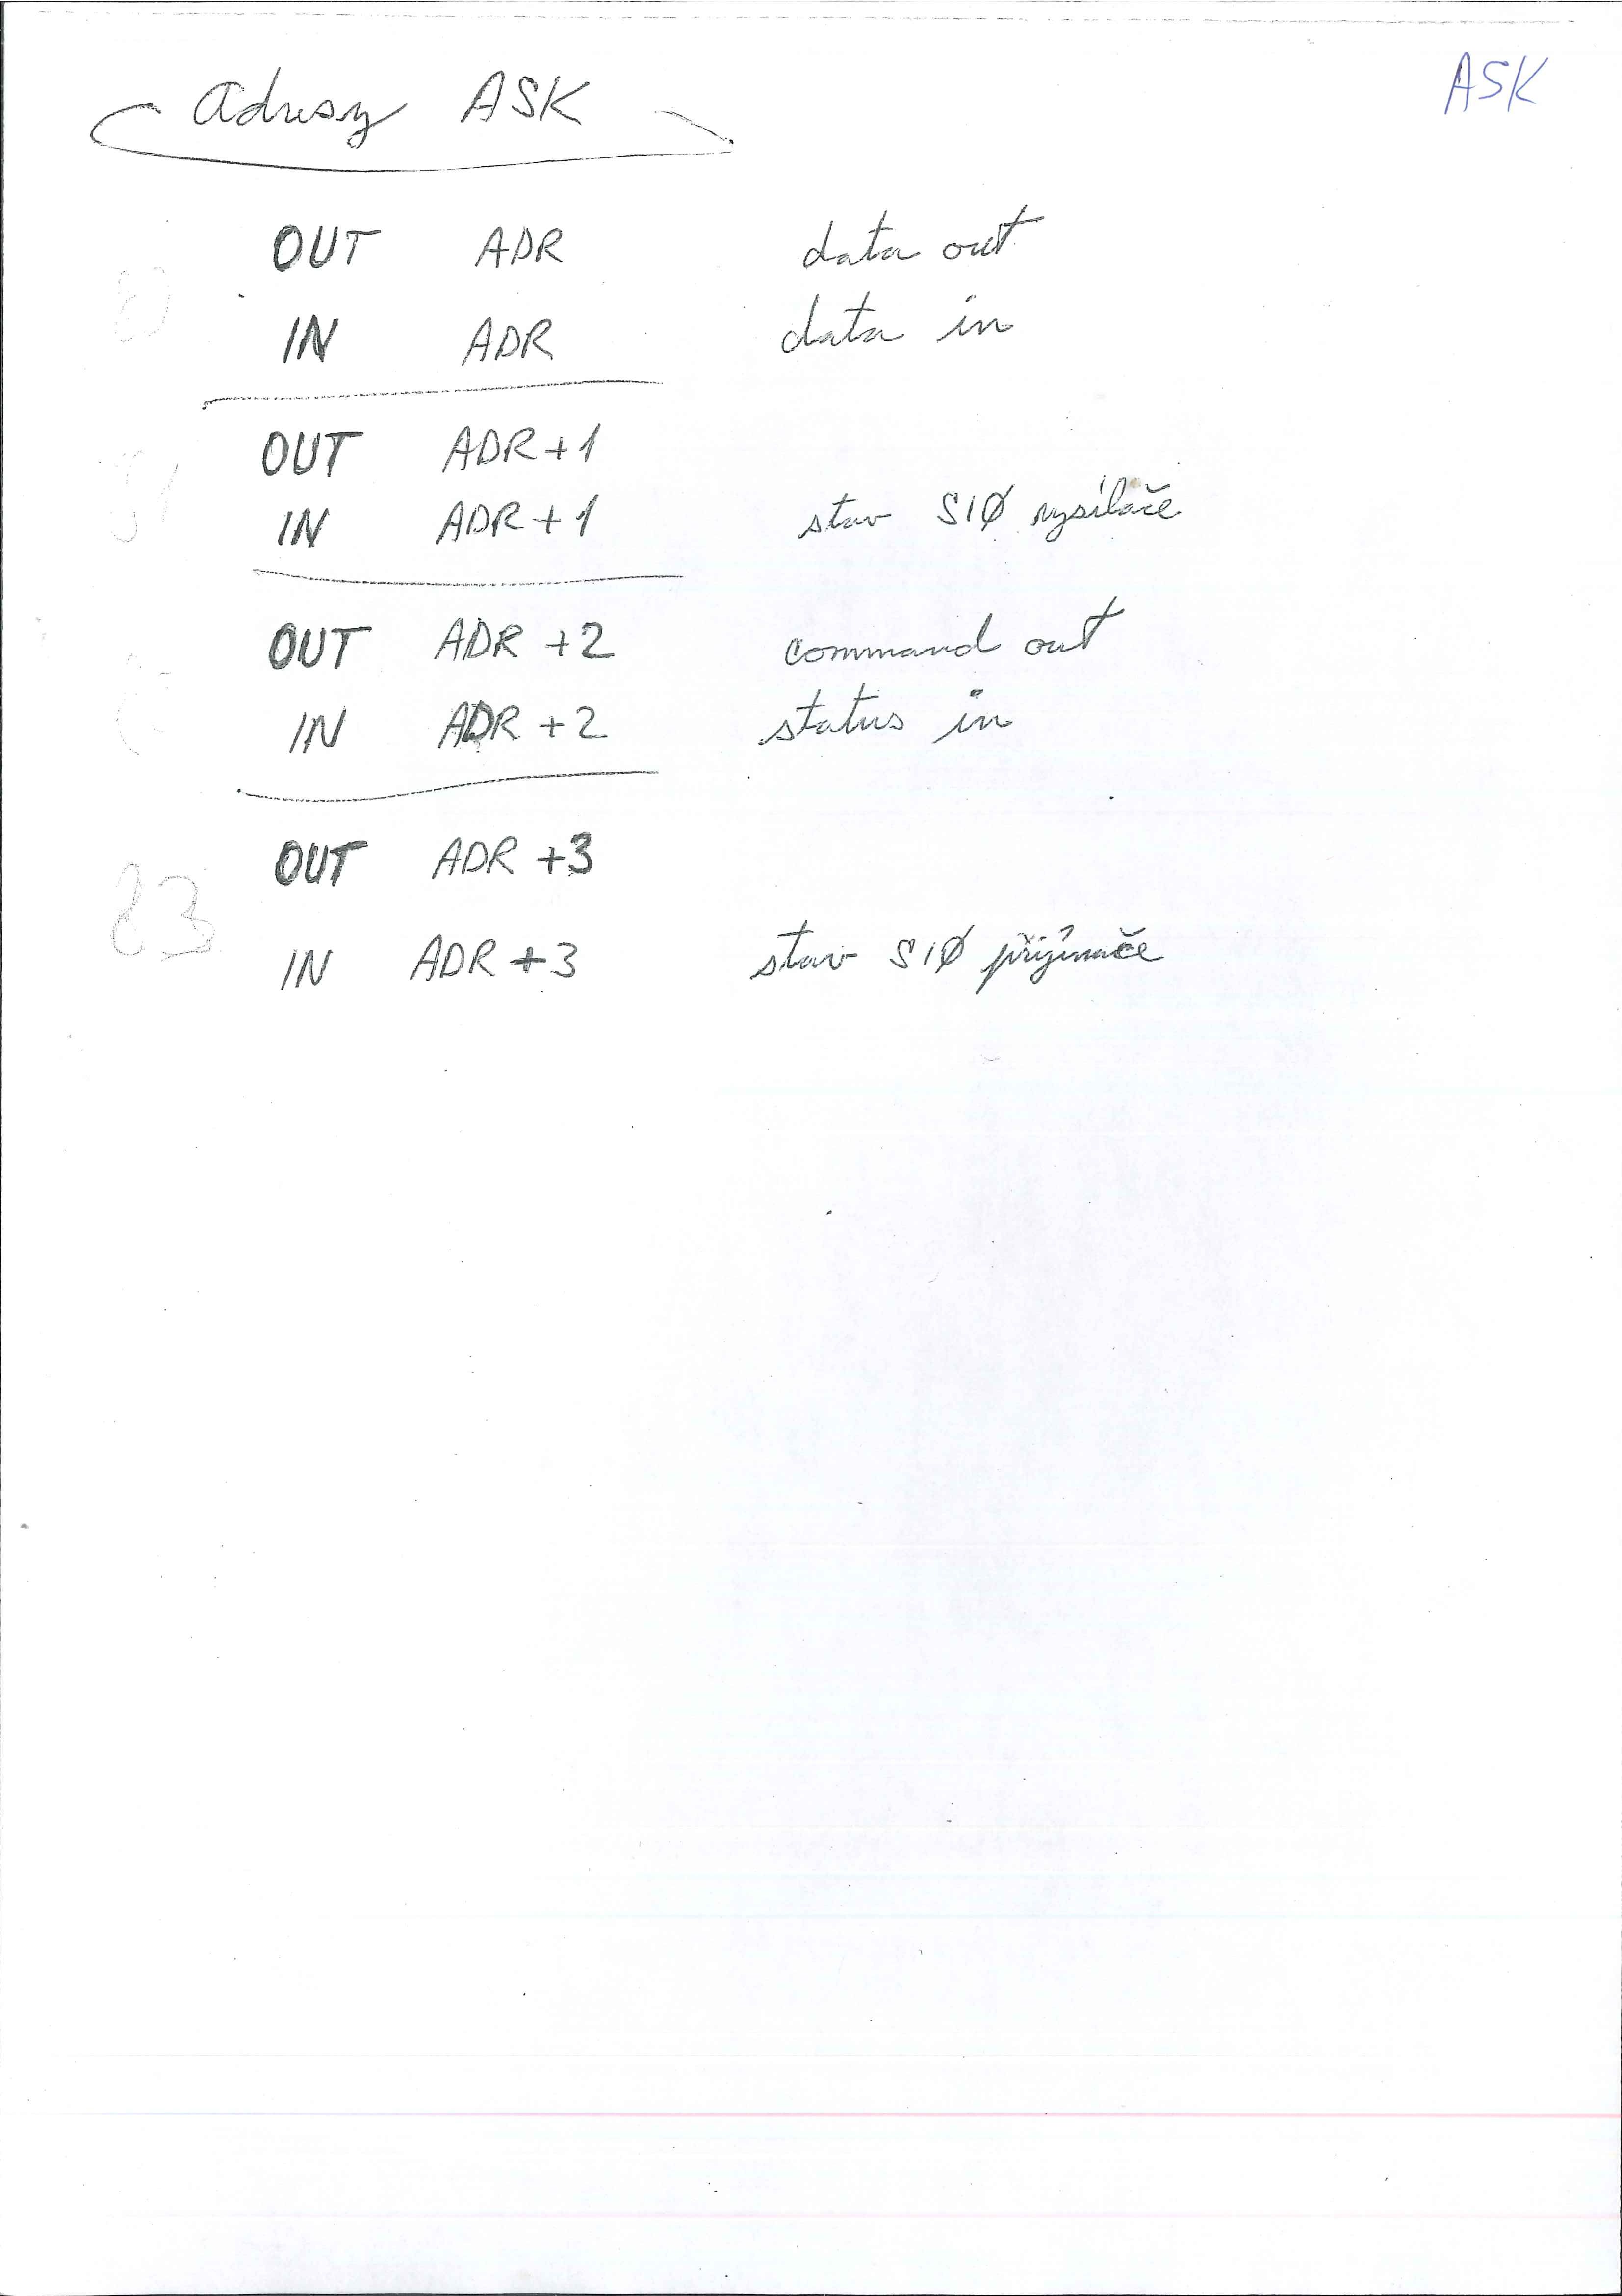 ASK
Adresy ASK
OUT ADR data out
IN ADR data in
OUT ADR+1
IN ADR+1 stav SIØ vysílače
OUT ADR+2 command out
IN ADR+2 status in
OUT ADR+3
83
IN ADR+3 stav SIØ přijímače